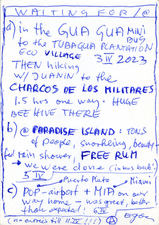 WAITING FOR/@
a) in the GUA GUA MINI
BUS
to the TUBAGUA PLANTATION
ECO VILLAGE 3 IV 2023
THEN hiking
W/JUANIN to the
CHARCOS DE LOS MILITARES
1.5 hrs one way. HUGE
BEE HIVE THERE
b) @ PARADISE ISLAND: TONS
of people, snorkeling, beauty-
ful rain shower, FREE RUM
we were done
5 IV Puerto Plata → Miami
c) POP-airport → MIA on our
way home -
than expected! 6 IV